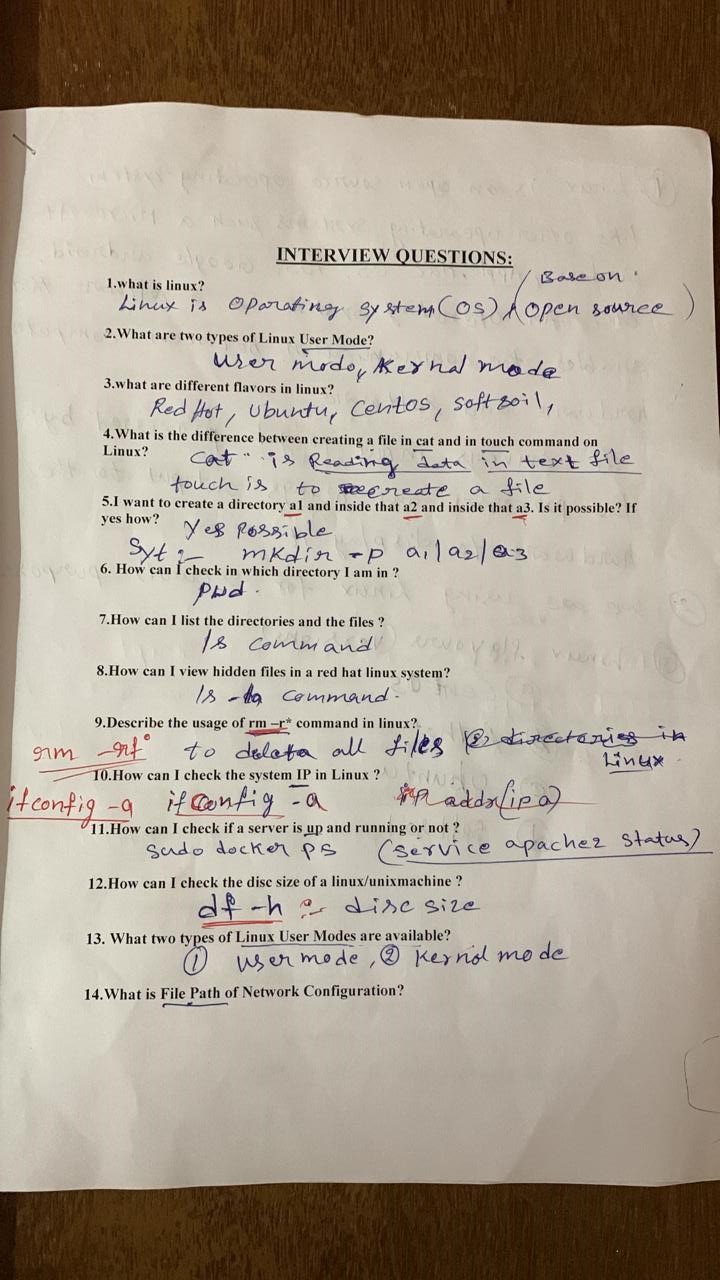 INTERVIEW QUESTIONS:
1.what is linux?
Base on
Linux is Oporating system (OS) (open source)
2.What are two types of Linux User Mode?
User mode, Kernal mode
3.what are different flavors in linux?
Red Hot, Ubuntu, Centos, softsoil,
4.What is the difference between creating a file in cat and in touch command on
Linux?
Cat" is Reading data in text file
touch is to create a file
5.I want to create a directory a1 and inside that a2 and inside that a3. Is it possible? If
yes how?
Yes Possible
Syt :- mkdir -p a1/a2/a3
6. How can I check in which directory I am in ?
Pwd.
7.How can I list the directories and the files ?
ls command
8.How can I view hidden files in a red hat linux system?
ls -la command.
9.Describe the usage of rm –r* command in linux?
rm -rf to delete all files & directories in
Linux.
10.How can I check the system IP in Linux ?
ifconfig -a ifconfig -a IP addr(ip a)
11.How can I check if a server is up and running or not ?
sudo docker ps (service apache2 status)
12.How can I check the disc size of a linux/unixmachine ?
df -h :- disc size
13. What two types of Linux User Modes are available?
① user mode, ② Kernal mode
14.What is File Path of Network Configuration?